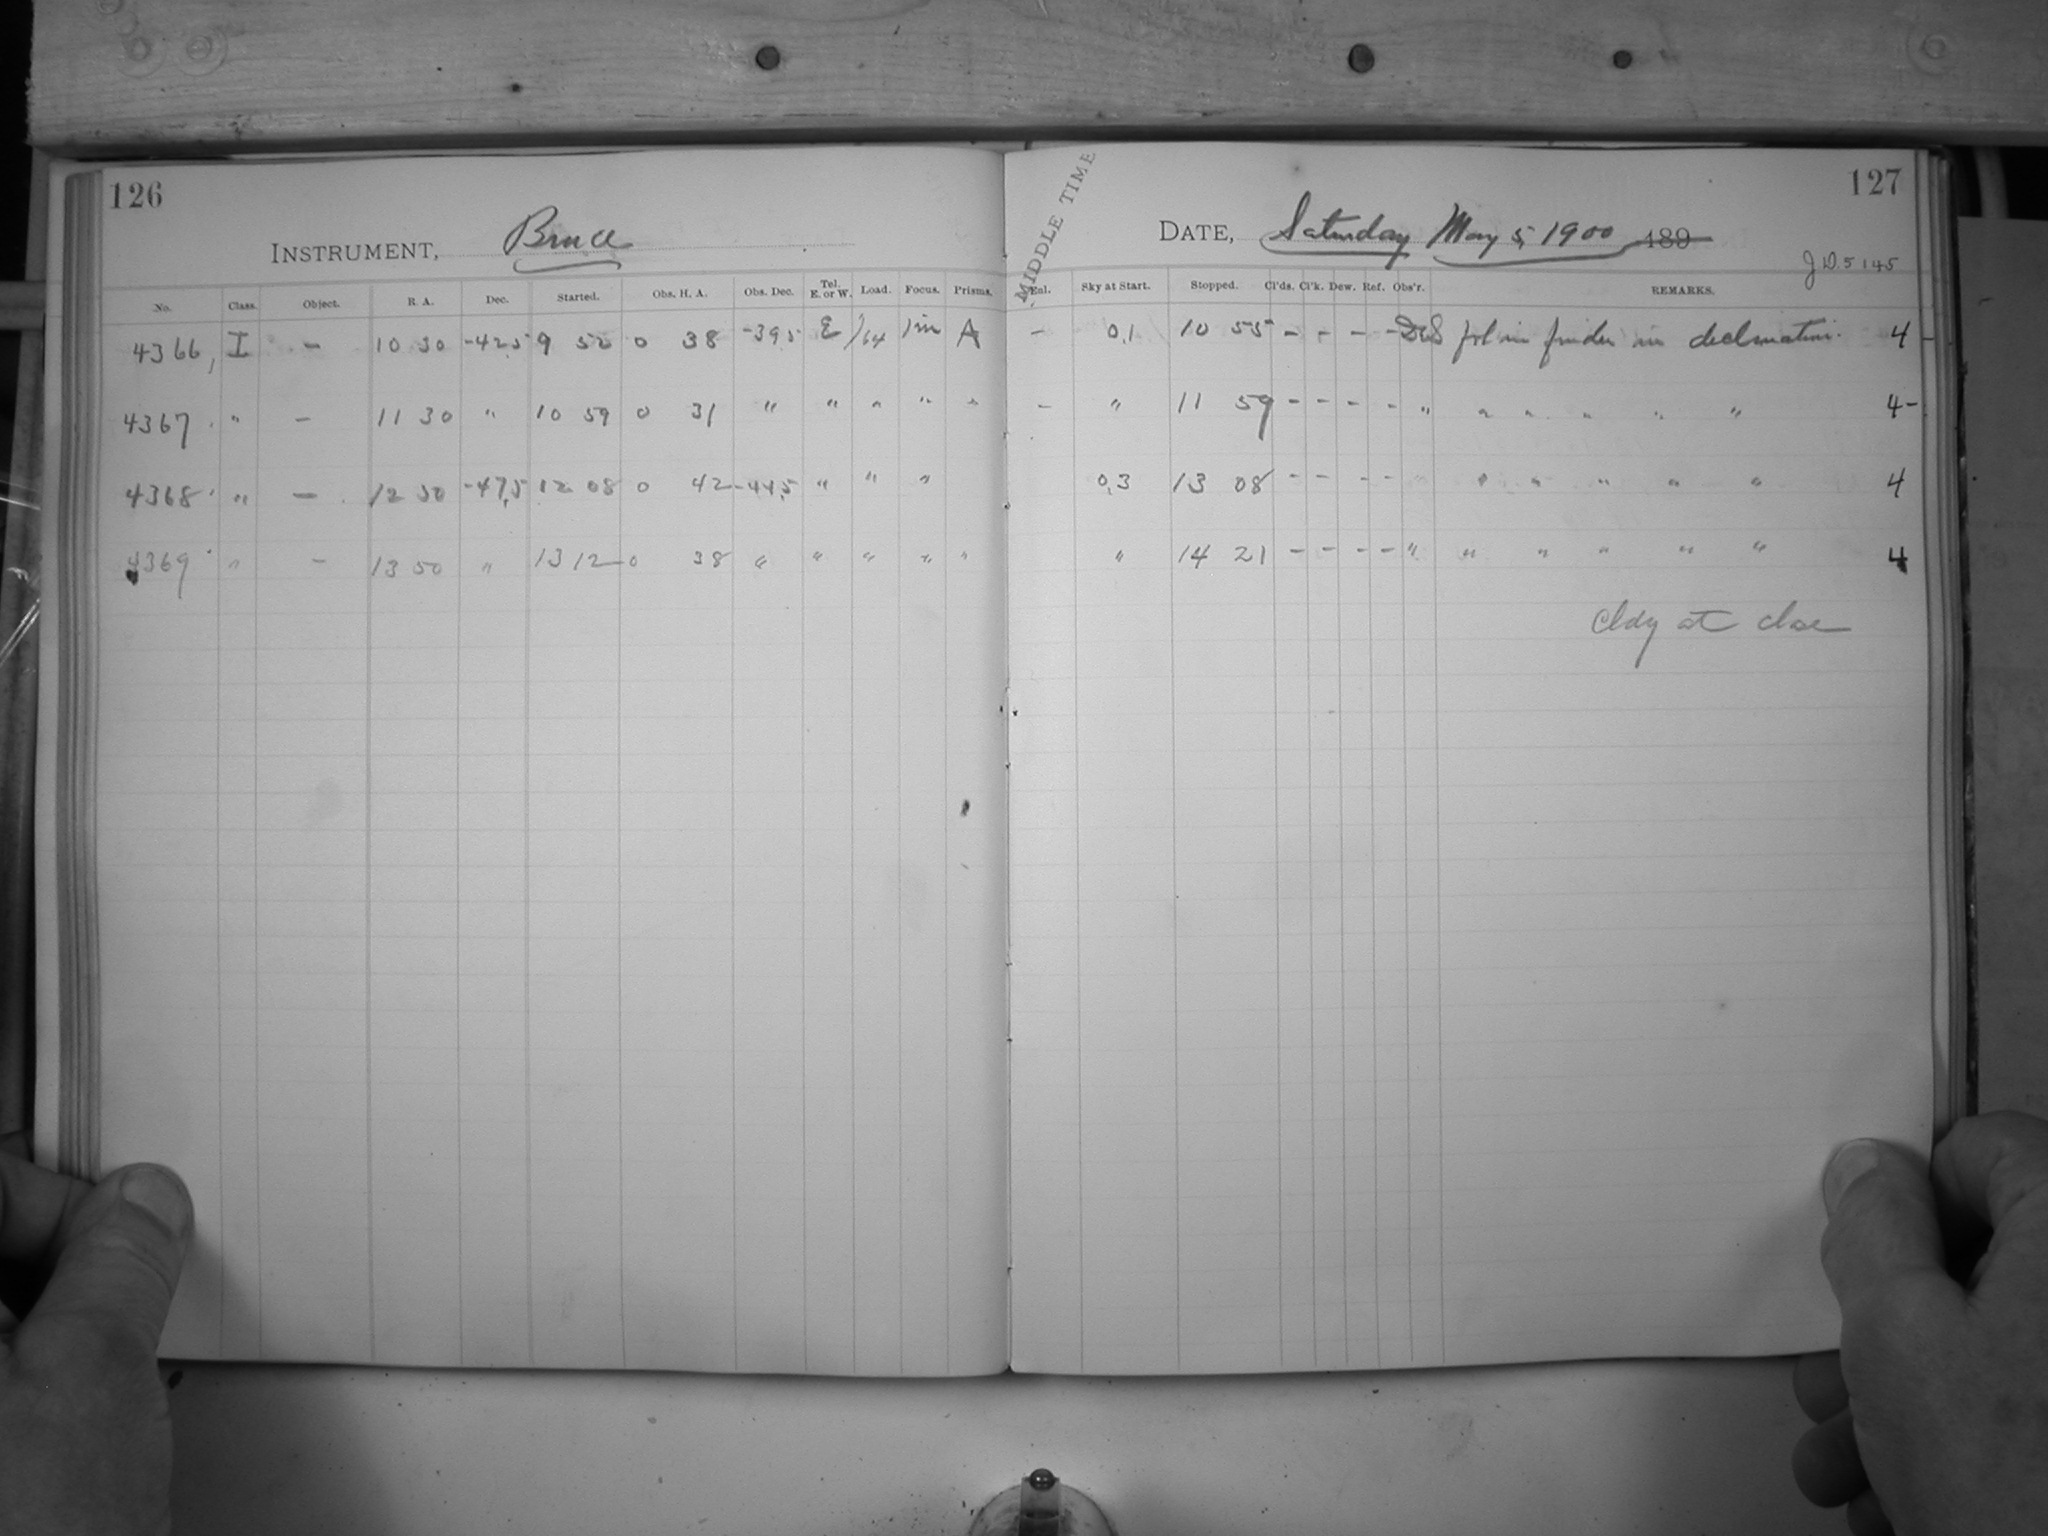 126
INSTRUMENT, Bruce
No. Class. Object. R. A. Dec. Started. Obs. H. A. Obs. Dec. Tel. E. or W. Load. Focus. Prisms.
4366, I – 10 30 -42,5 9 52 0 38 -39,5 E /64 lin A
4367 " – 11 30 " 10 59 0 31 " " " " "
4368 " – 12 50 -47,5 12 08 0 42 -44,5 " " "
4369 " – 13 50 " 13 12 0 38 " " " " "
127
MIDDLE TIME
DATE, Saturday May 5, 1900 189
J.D. 5145
Enl. Sky at Start. Stopped. Cl'ds. Cl'k. Dew. Ref. Obs'r. REMARKS.
– 0,1 10 55 – – – – in finder in declination. 4 –
– " 11 59 – – – – " " " " " " 4 –
0,3 13 08 – – – – " " " " " " 4
" 14 21 – – – – " " " " " " 4
Cldy at close